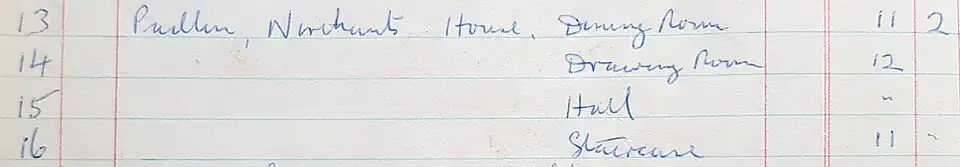 13 Pudlin, Northants House. Dining Room 11 2
14 Drawing Room 12
15 Hall "
16 Staircase 11 "